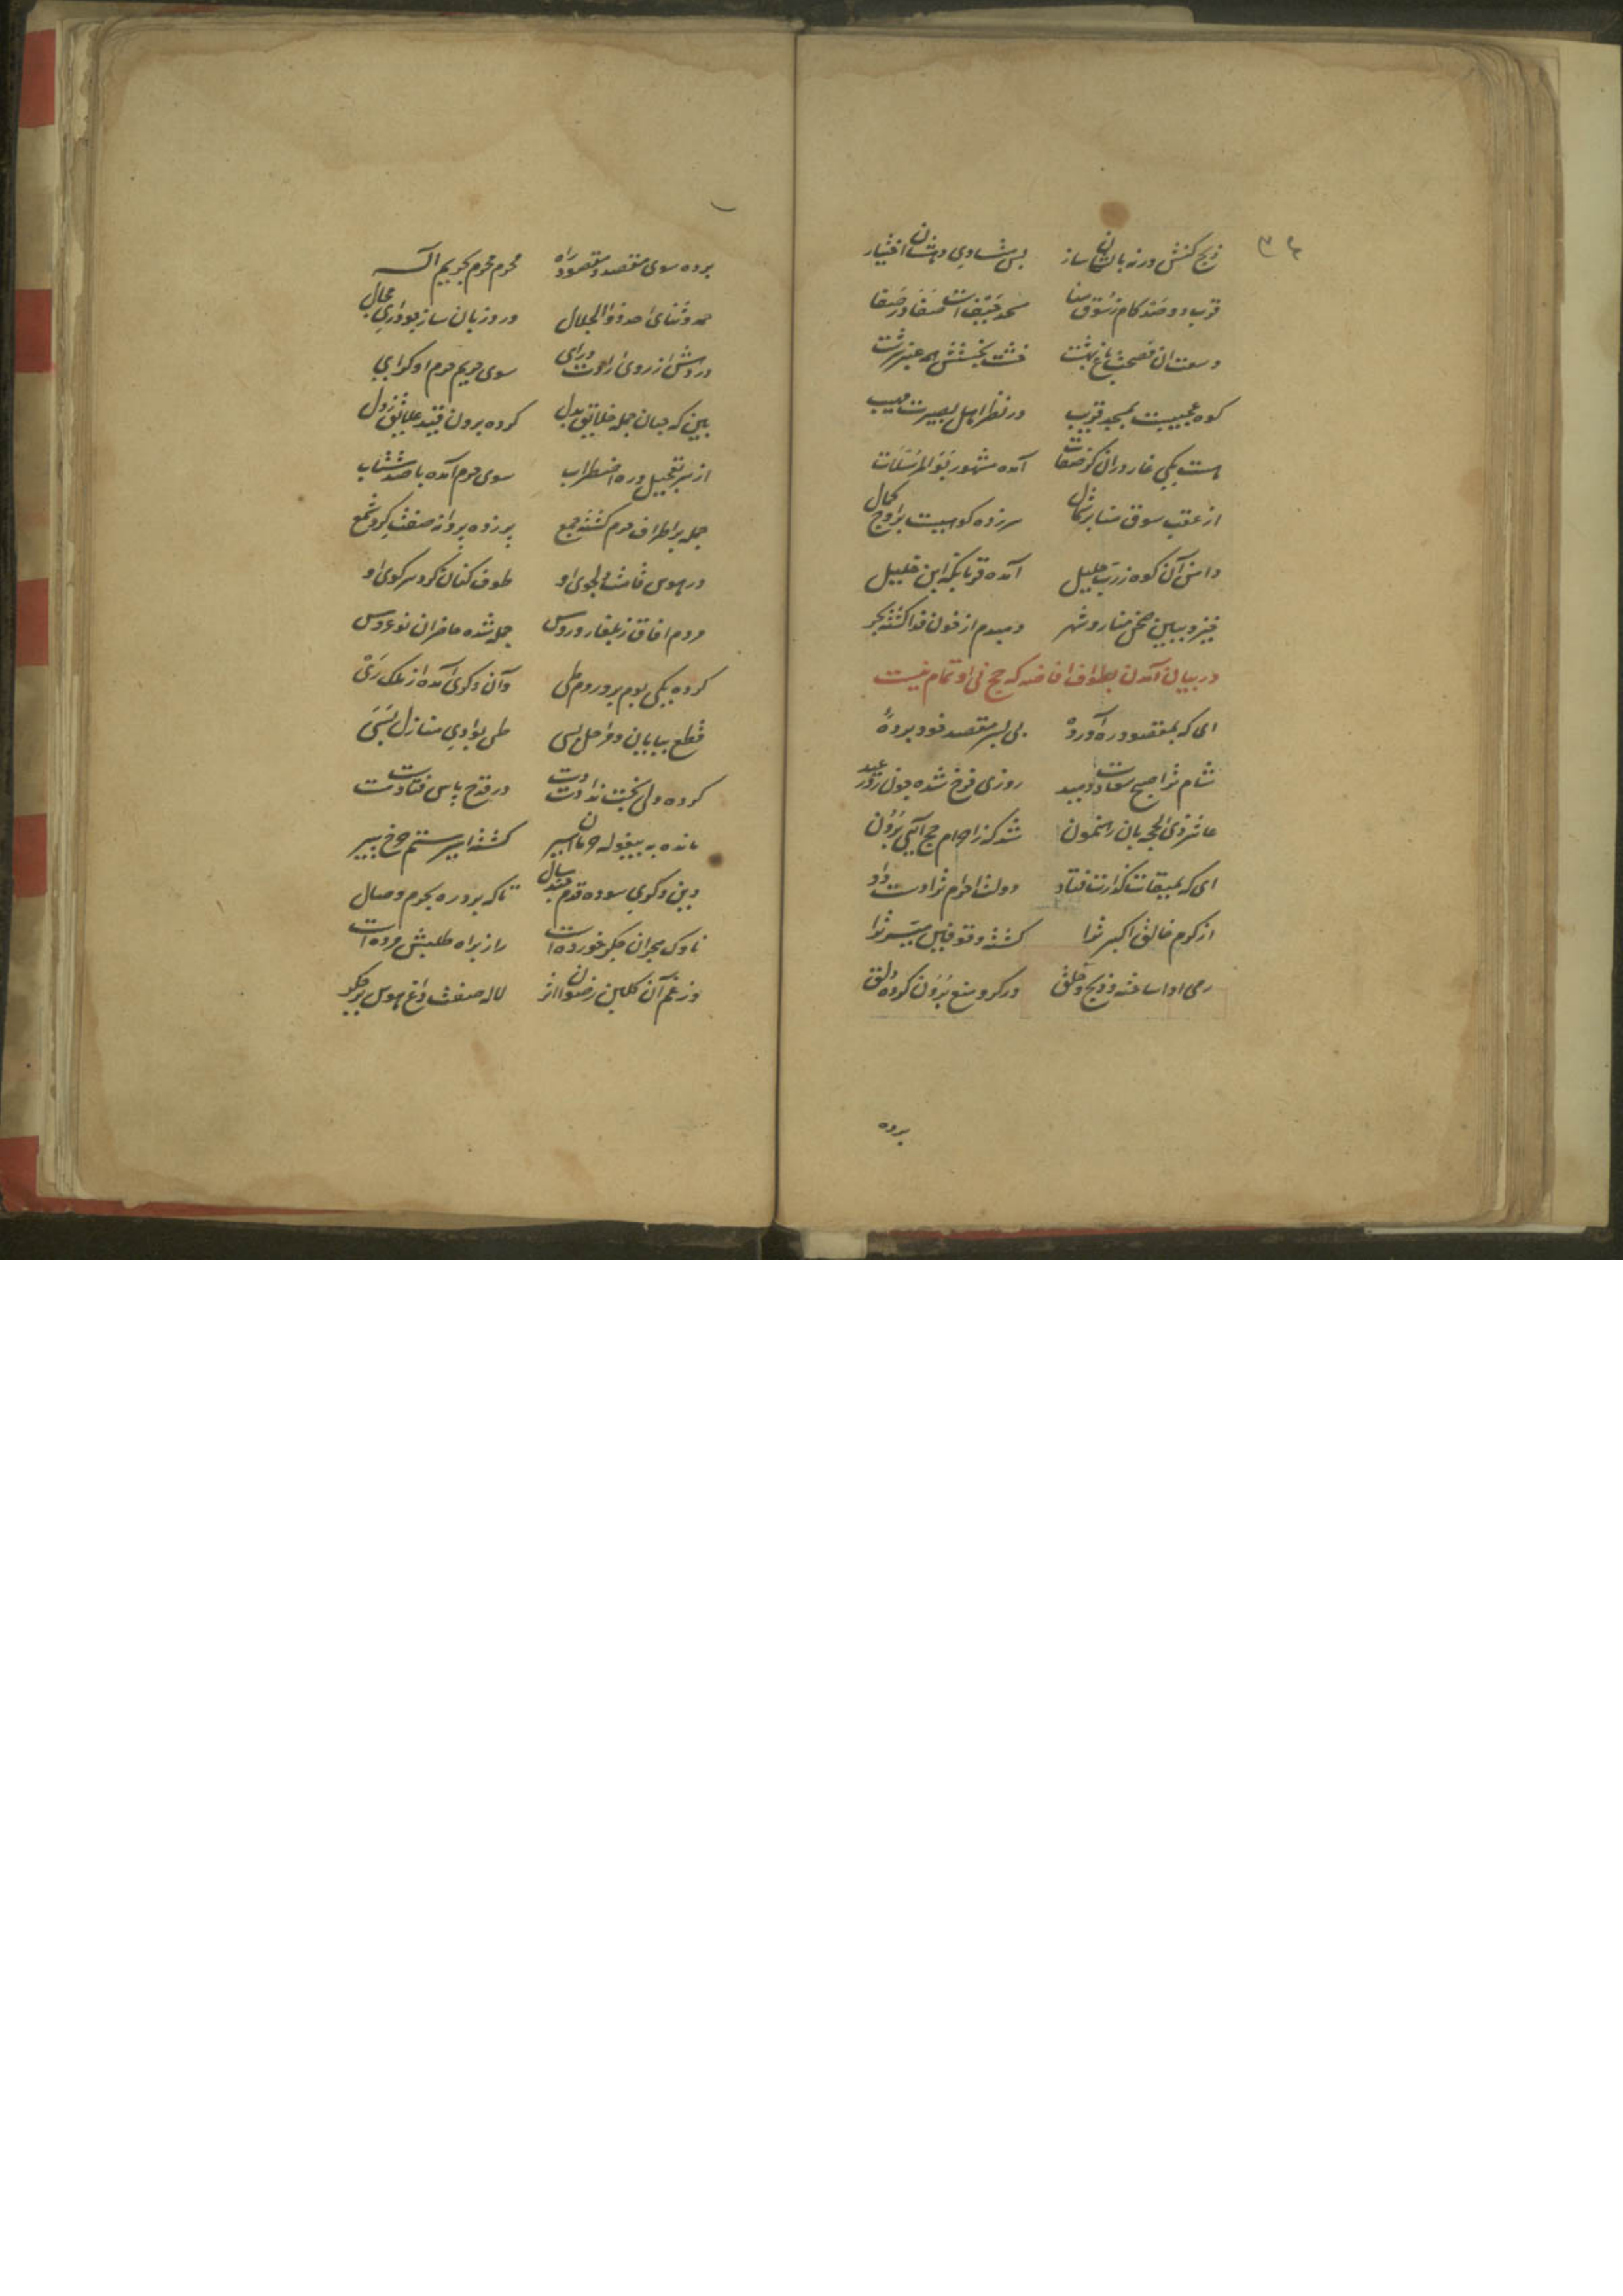 ۳۴
ذبح کنش ورنه بایشان ساز بس بشادی دهشان اختیار
قرب دو صد کام ز سوق منا مسجد خیف است صفا در صفا
وسعت آن فسحت باغ بهشت خشت بخشتش همه عنبر سرشت
کوه عجیبیست بمسجد قریب در نظر اهل بصیرت مهیب
هست یکی غار در آن که صفات آمده مشهور بو المرسلات
از عقب سوق منا بر شمال سر زده کوهیست بر اوج کمال
دامن آن کوه ز رب جلیل آمده قربانگه ابن خلیل
خیز و ببین صحن منا روز شهر دمبدم از خون فدا گشته بحر
در بیان آمدن بطواف افاضه که حج بی او تمام نیست
ای که بمقصود ره آورده پی بسر مقصد خود برده
شام ترا صبح سعادت دمید روزی فرخ شده چون روز عید
عاشر ذی الحجه بآن رهنمون شد که ز احرام حج آیی برون
ای که بمیقات گذارت فتاد دولت احرام ترا دست داد
از کرم خالق اکبر ترا گشته وقوف میسر ترا
رمی ادا ساخته و ذبح و حلق در کرو منع برون کرده دلق
برده
برده سوی مقصد و مقصود راه محرم محرم بحریم اله
حمد و ثنای احد ذو الجلال ورد زبان ساز چو داری مجال
در روش از روی ارادت درای سوی حریم حرم او گرای
بین که جهان جمله خلایق بدل کرده برون قید علایق ز دل
از سر تعجیل و ره اضطراب سوی حرم آمده با صد شتاب
جمله بر اطراف حرم گشته جمع پر زده پروانه صفت گرد شمع
در هوس قامت دلجوی او طوف کنان گرد سر کوی او
مردم آفاق ز بلغار و روس جمله شده حاضر آن نو عروس
کرده یکی بوم و بر روم طی وآن دگری آمده از ملک ری
قطع بیابان و مراحل بسی طی بوادی منازل بسی
کرده ولی بخت ندادست دست در قدح یاس فتادست
مانده به بیغوله حرمان اسیر گشته اسیر ستم چرخ پیر
وین دگری سوده قدم چند سال تا که برد ره بحرم وصال
ناوک هجران جگر خورده است راز براه طلبش مرده است
وز غم آن گلبن رضوان اثر لاله صفت داغ هوس بر جگر